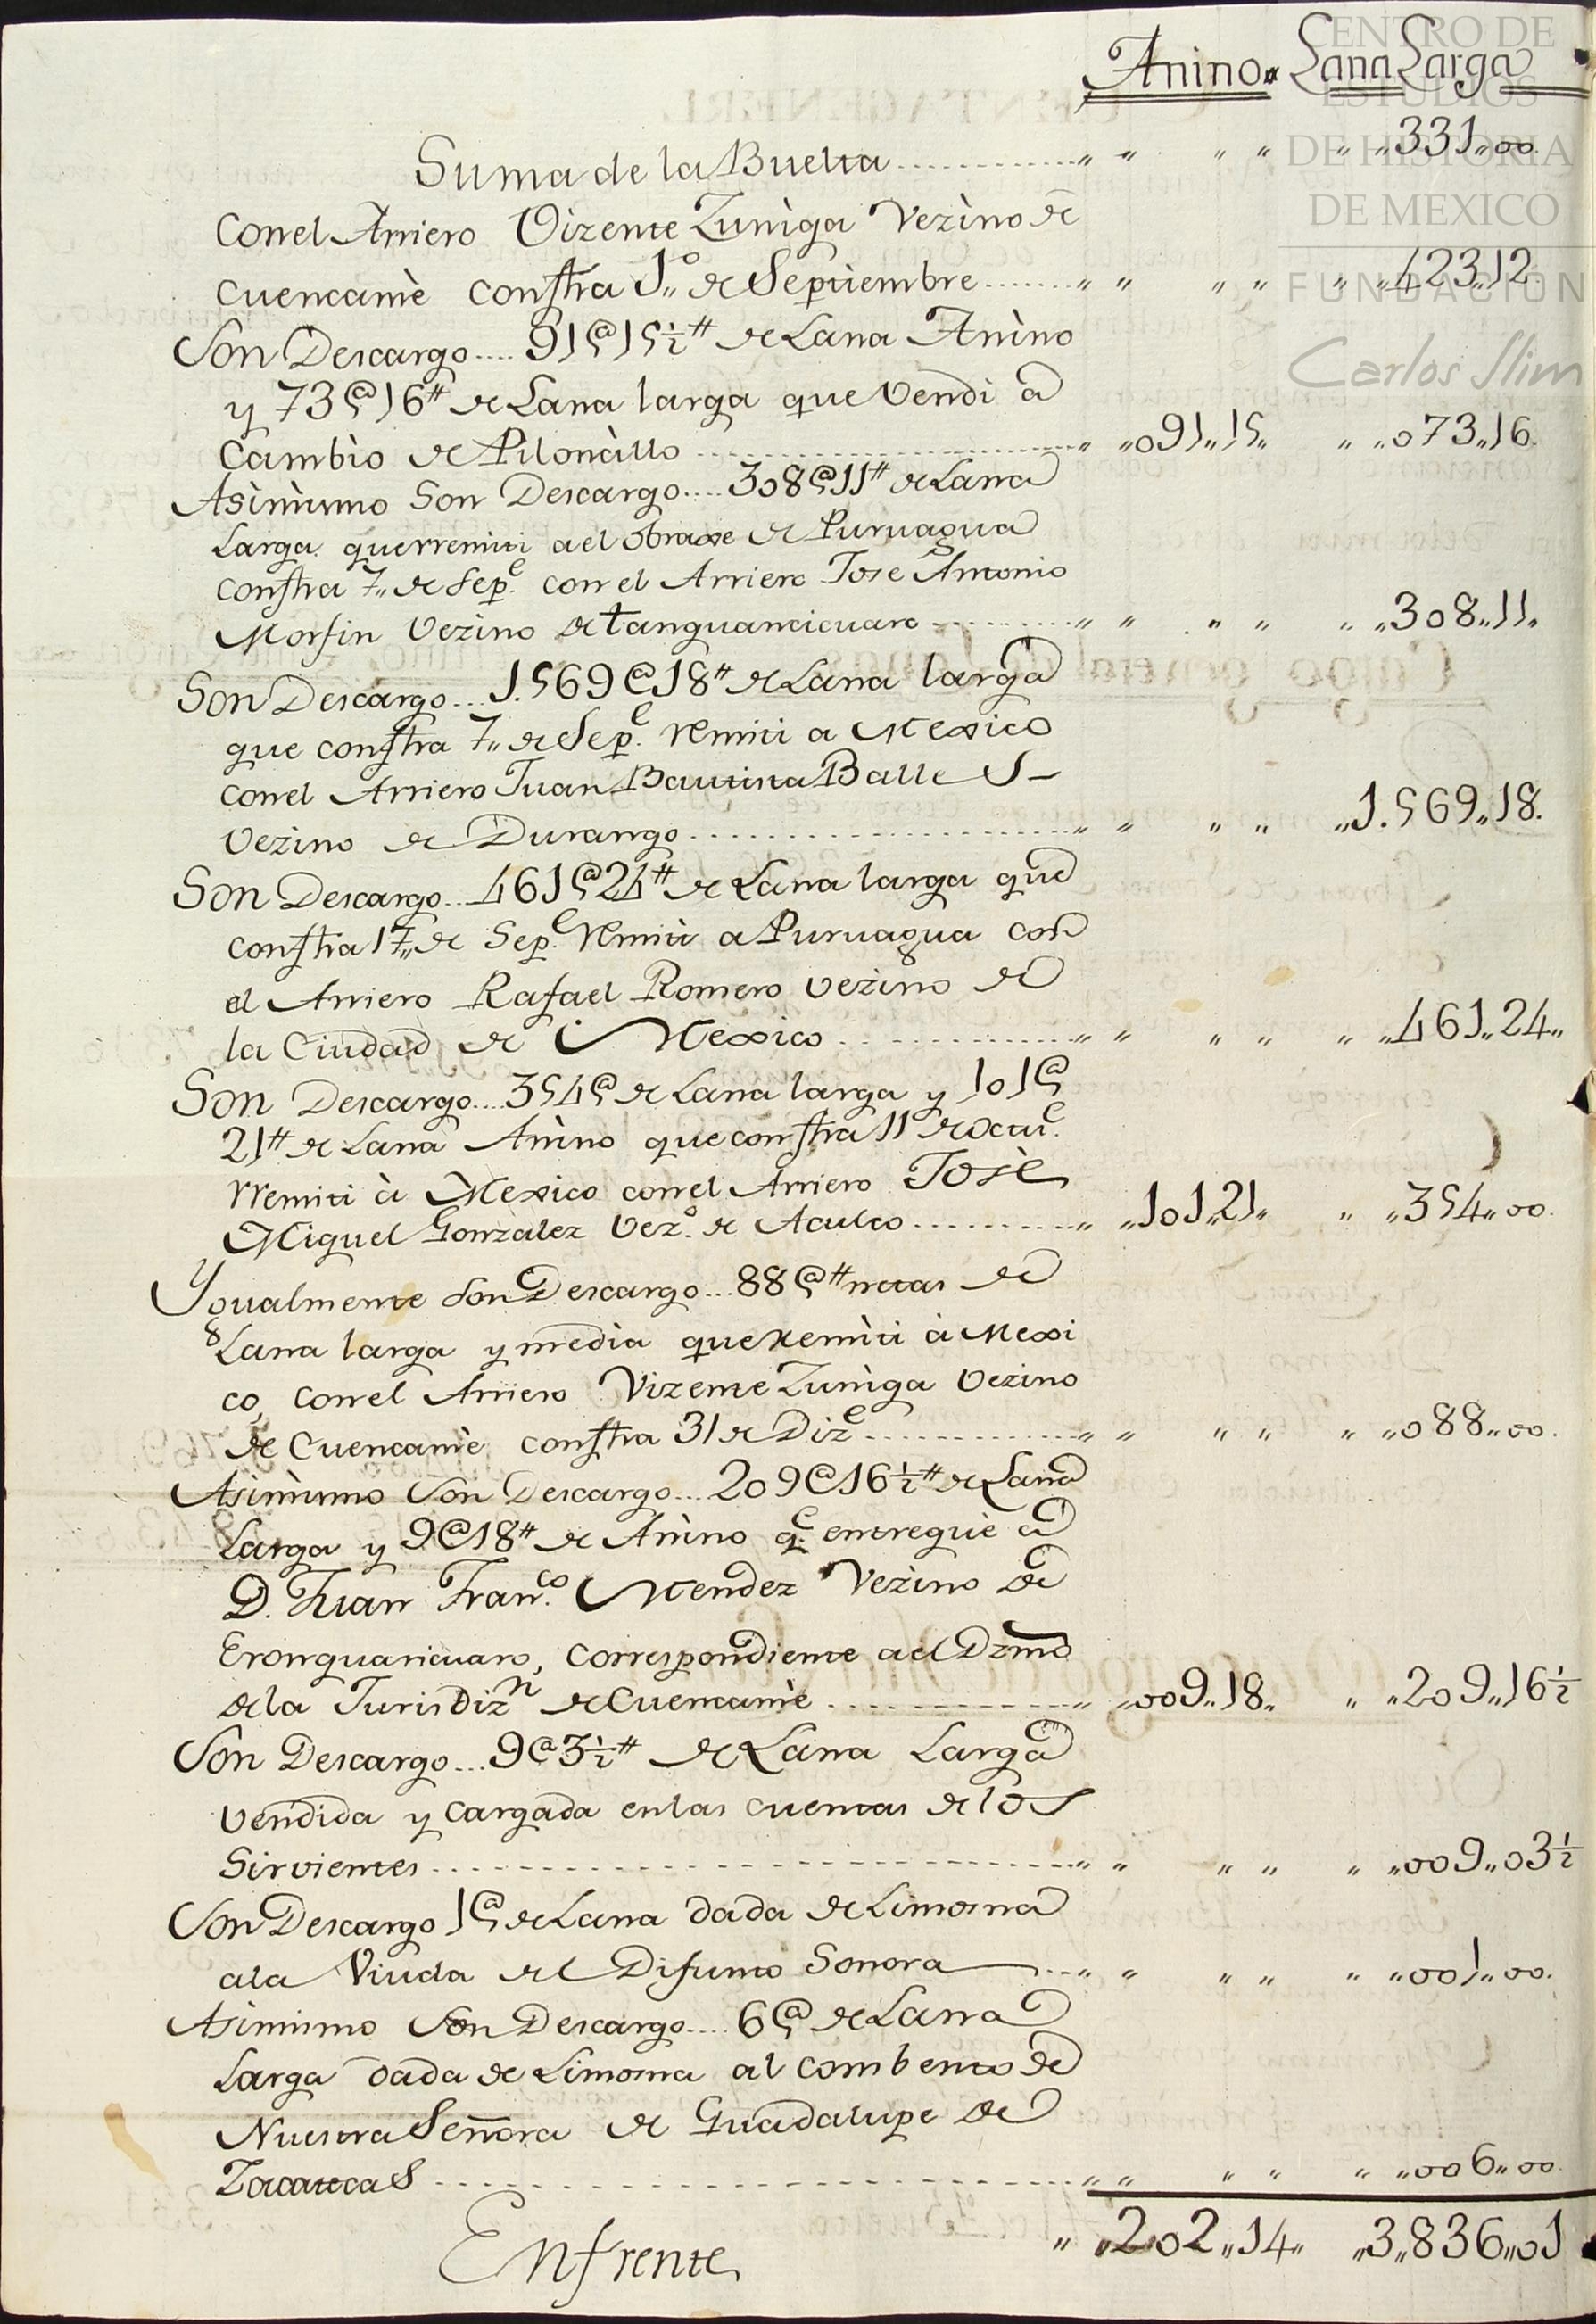 Anino. Lana Larga
Suma de la Buelta ............ " " " " " " 331,, 00.
Con el Arriero Vizente Zuniga Vezino de
Cuencamè constra 1º,, de Septiembre ........ " " " " " " 423,, 12.
Son Descargo .... 91@15½# de Lana Anino
y 73@16# de Lana larga que Vendi à
Cambio de Piloncillo ............ " " 091,, 15,, " " 073,, 16.
Asimismo Son Descargo .... 308@11# de Lana
Larga querremiti a el obraxe de Puruagua
constra 7,, de Sepe. con el Arriero Jose Antonio
Morfin Vezino de tanguancicuaro ............ " " " " " " 308,, 11,,
Son Descargo ... 1.569@18# de Lana larga
que constra 7,, de Sepe. remiti a Mexico
con el Arriero Juan Bautista Balles
Vezino de Durango ............ " " " " " 1.569,, 18.
Son Descargo ... 461@24# de Lana larga que
constra 17,, de Sepe. remiti a Puruagua con
el Arriero Rafael Romero Vezino de
la Ciudad de Mexico ............ " " " " " " 461,, 24,,
Son Descargo ... 354@ de Lana larga y 101@
21# de Lana Anino que constra 11 de Octue.
rremiti à Mexico con el Arriero Josè
Miguel Gonzalez Vezº. de Aculco ............ " " 101,, 21,, " " 354,, 00.
Ygualmente Son Descargo ... 88@# netas de
Lana larga y media que remiti à Mexi
co, con el Arriero Vizente Zuniga Vezino
de Cuencamè constra 31 de Dize ............ " " " " " " 088,, 00.
Asimismo Son Descargo ... 209@16½# de Lana
Larga y 9@18# de Anino qe. entreguè à
D. Juan Franco. Mendez Vezino de
Eronguaricuaro, correspondiente a el Dzmo
de la Jurisdizn de Cuencamè ............ " " 009,, 18,, " " 209,, 16½
Son Descargo ... 9@3½# de Lana Larga
Vendida y Cargada en las cuentas de los
Sirvientes ............ " " " " " " 009,, 03½
Son Descargo 1@ de Lana dada de Limosna
a la Viuda del Difunto Sonora ............ " " " " " " 001,, 00.
Asimismo Son Descargo .... 6@ de Lana
Larga dada de Limosna al combento de
Nuestra Señora de Guadalupe de
Zacatecas ............ " " " " " " 006,, 00.
Enfrente " " 202,, 14,, " 3,, 836,, 01
CENTRO DE
ESTUDIOS
DE HISTORIA
DE MEXICO
FUNDACIÓN
Carlos Slim